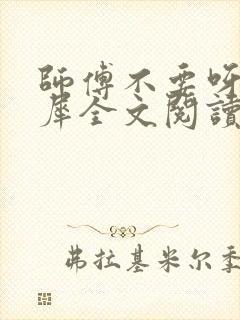 師傅不要呀
犀全文閱讀
弗拉基米尔季